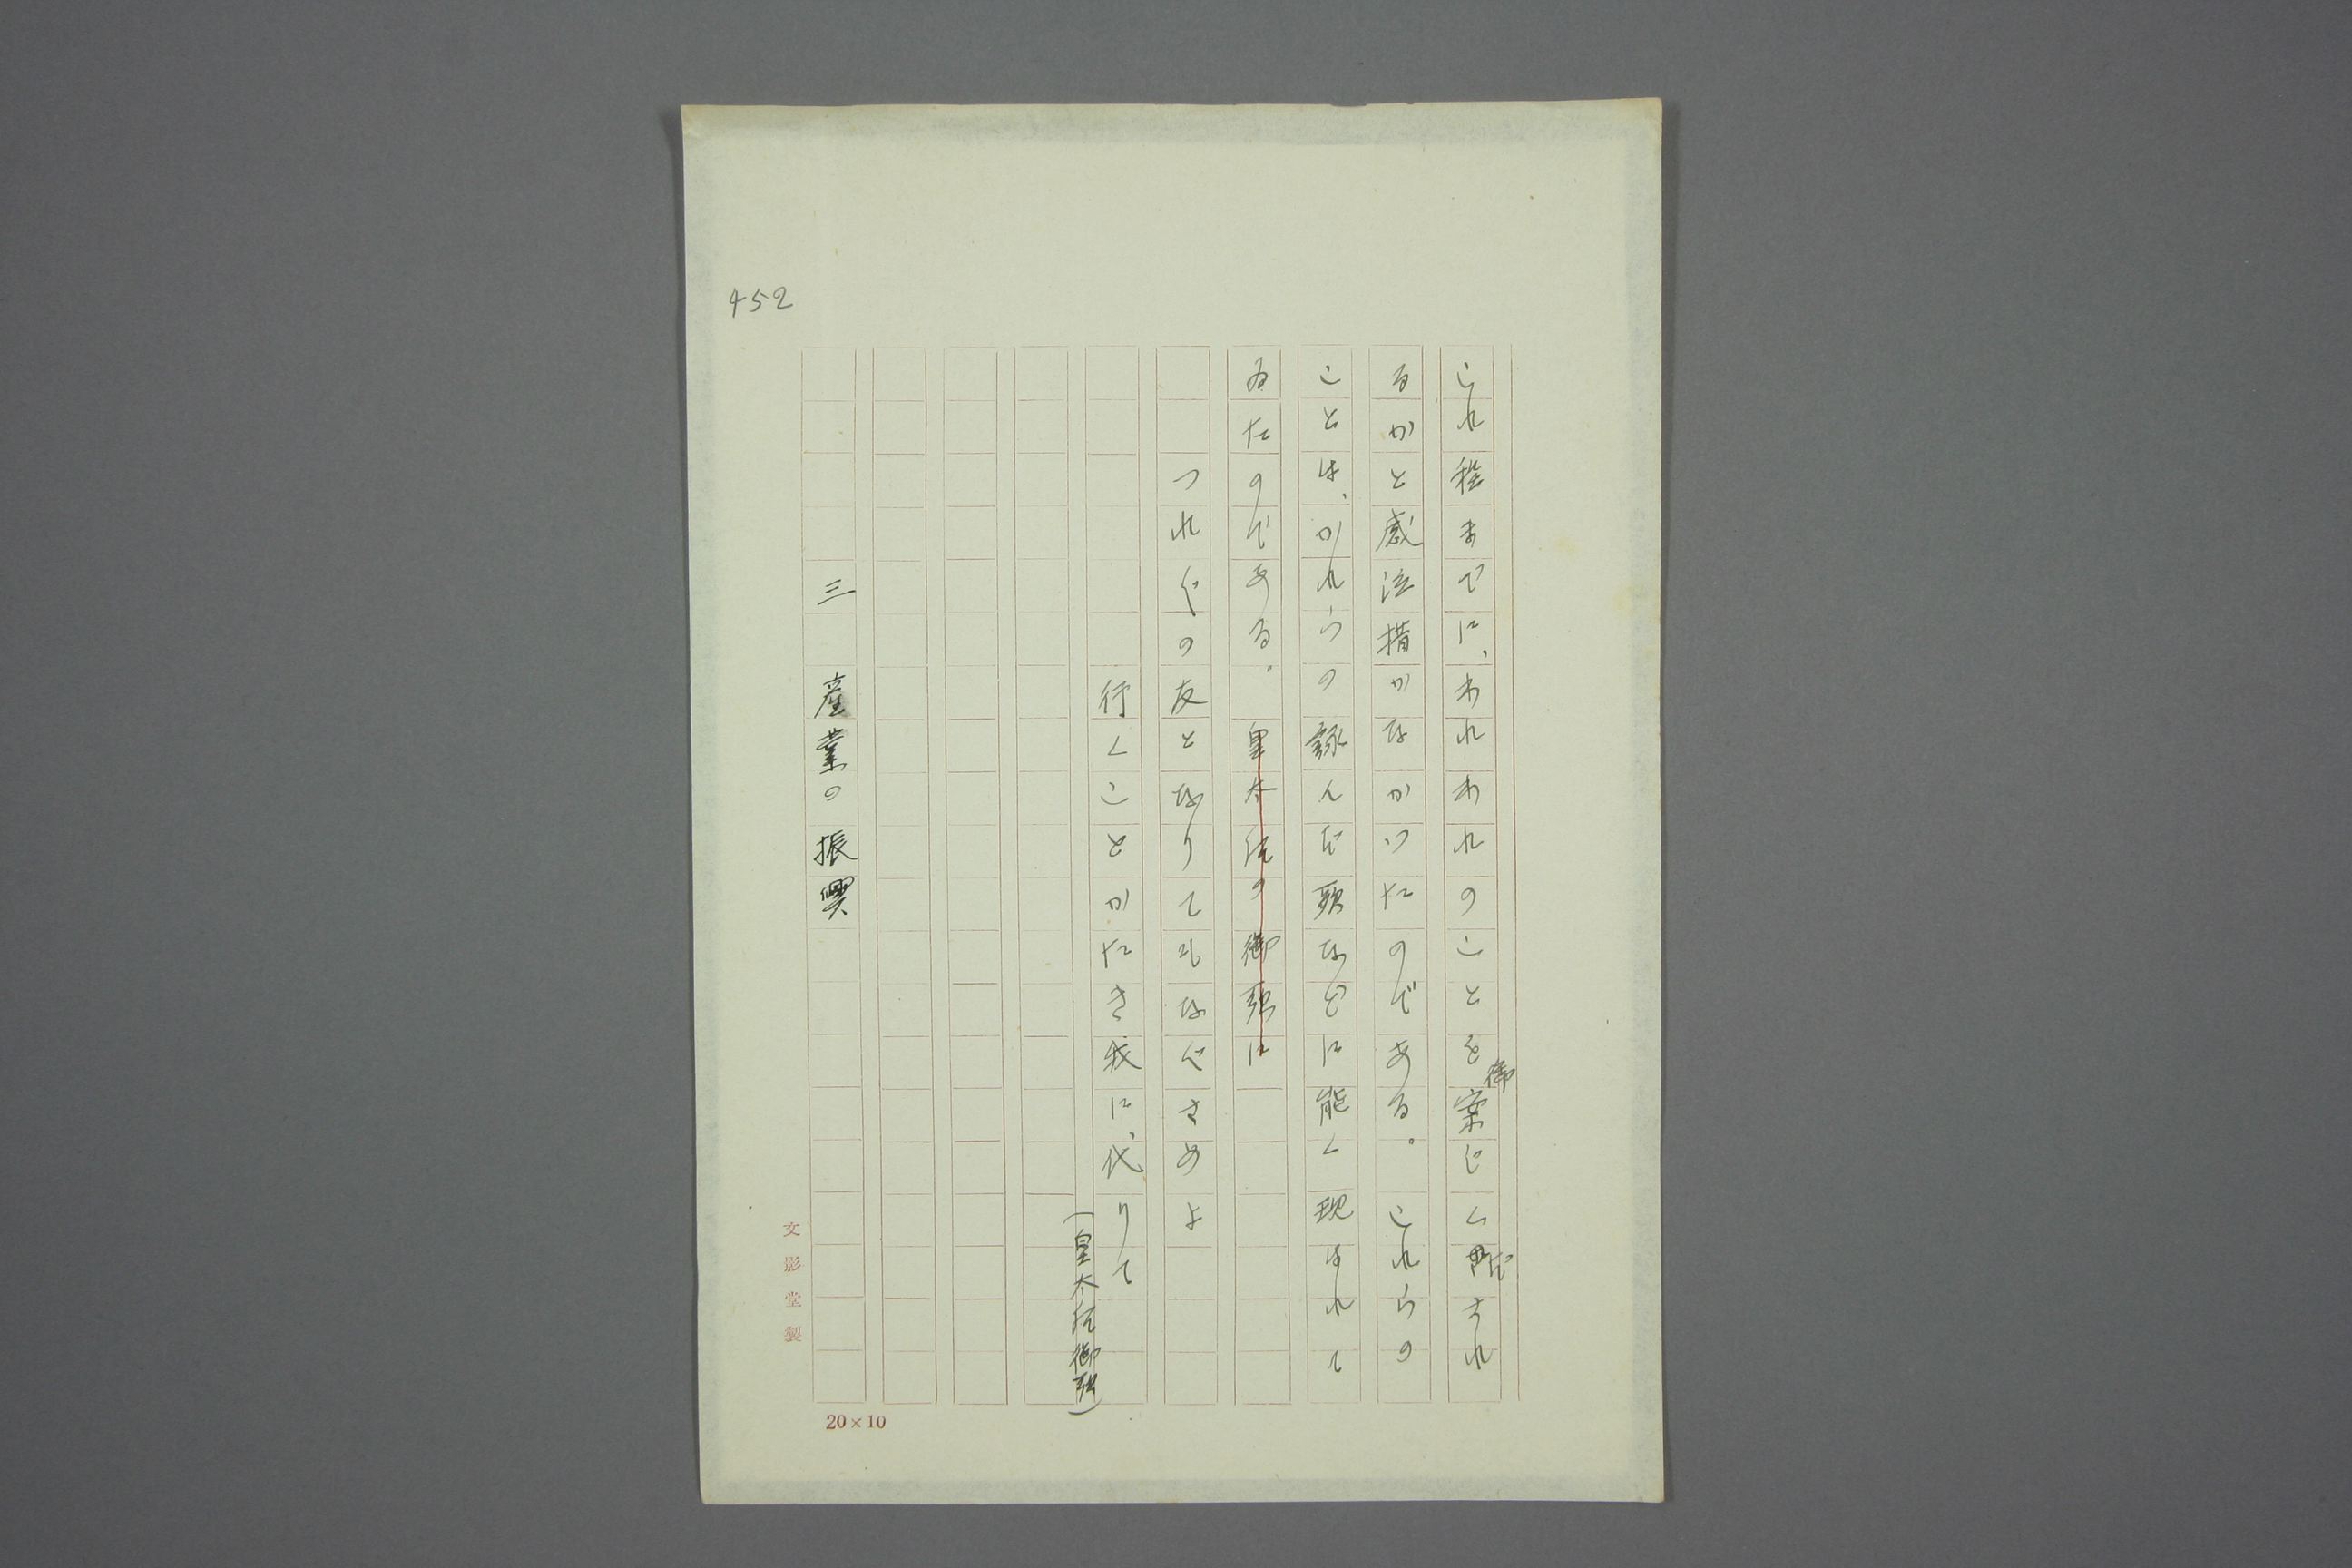 452
これ程までに、われわれのことを御案じくだされ
るかと感泣措かなかつたのである。これらの
ことは、かれらの詠んだ歌などに能く現はれて
ゐたのである。皇太后の御歌に
つれ〴〵の友となりてもなぐさめよ
行くことかたき我に代りて
(皇太后御歌)
三 産業の振興
文影堂製
20×10